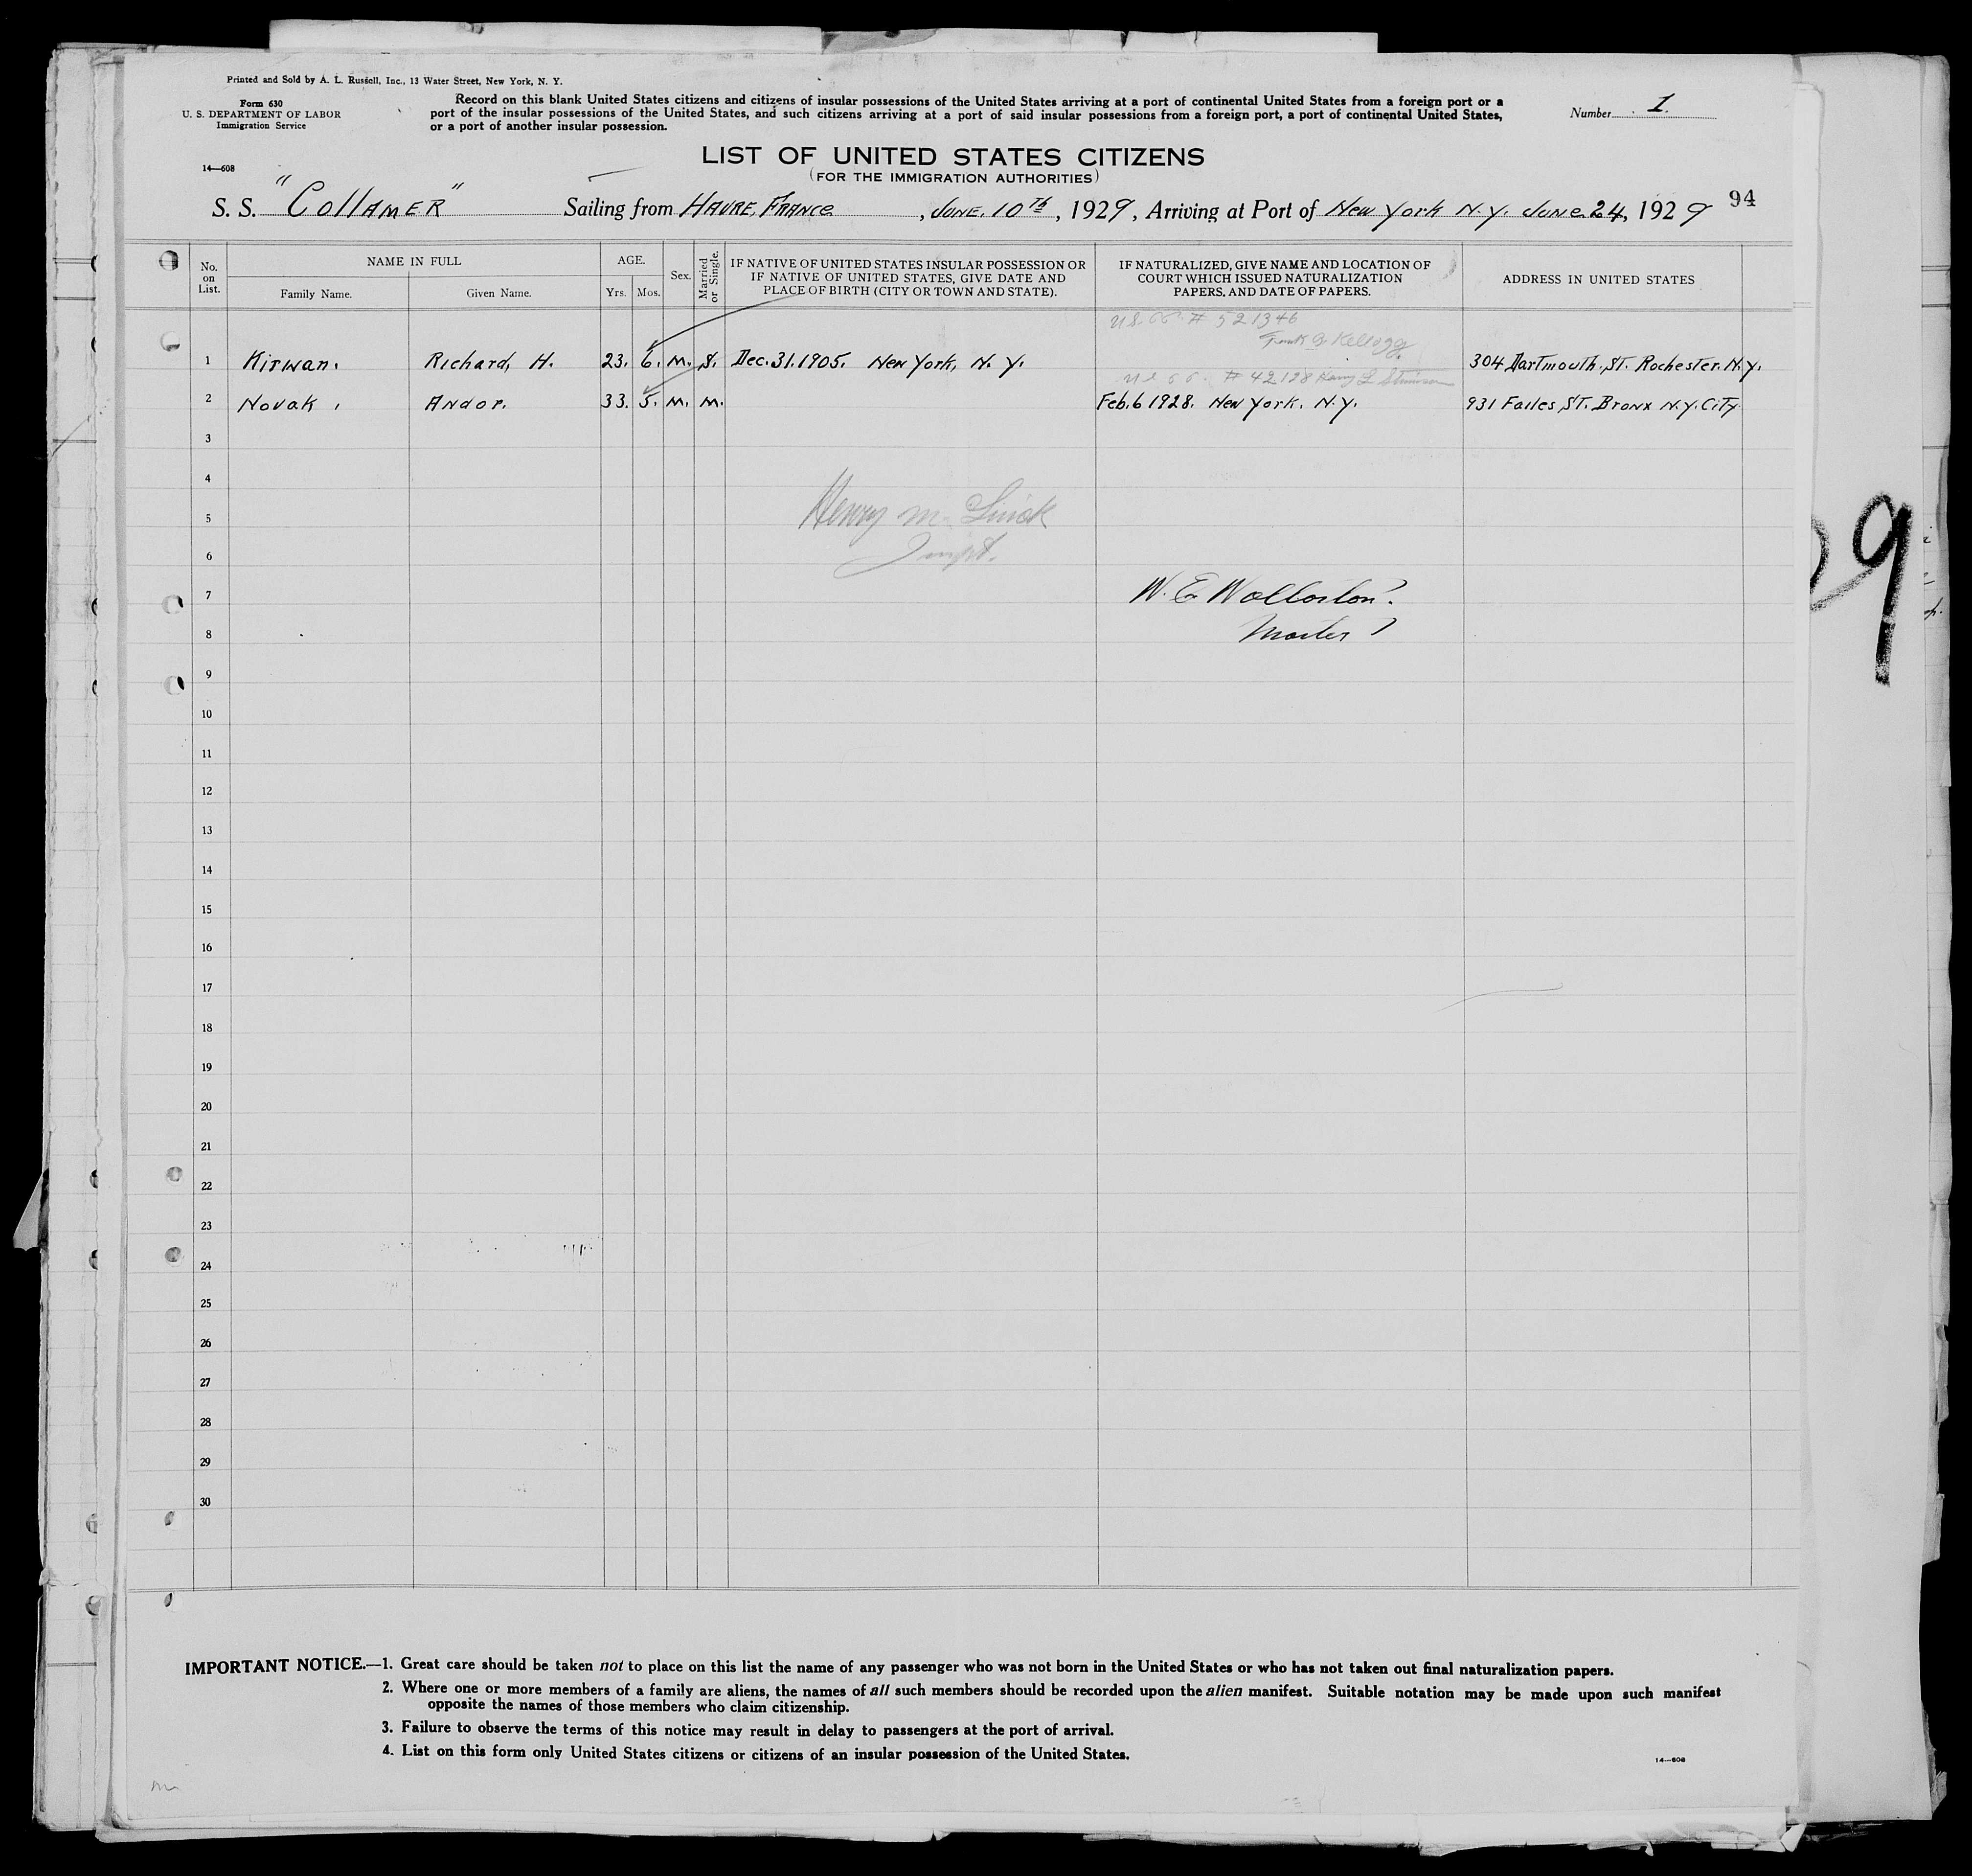 Printed and Sold by A. L. Russell, Inc., 13 Water Street, New York, N. Y.
Form 630
U. S. DEPARTMENT OF LABOR
Immigration Service
14—608
Record on this blank United States citizens and citizens of insular possessions of the United States arriving at a port of continental United States from a foreign port or a
port of the insular possessions of the United States, and such citizens arriving at a port of said insular possessions from a foreign port, a port of continental United States,
or a port of another insular possession.
Number 1.
LIST OF UNITED STATES CITIZENS
(FOR THE IMMIGRATION AUTHORITIES)
S. S. "Collamer" Sailing from Havre, France, June. 10th, 1929, Arriving at Port of New York N.Y. June 24, 1929
94
No. on List.
NAME IN FULL
Family Name.
Given Name.
AGE.
Yrs.
Mos.
Sex.
Married or Single.
IF NATIVE OF UNITED STATES INSULAR POSSESSION OR
IF NATIVE OF UNITED STATES, GIVE DATE AND
PLACE OF BIRTH (CITY OR TOWN AND STATE).
IF NATURALIZED, GIVE NAME AND LOCATION OF
COURT WHICH ISSUED NATURALIZATION
PAPERS, AND DATE OF PAPERS.
ADDRESS IN UNITED STATES
# 521346
Frank B. Kellogg
1 Kirwan. Richard, H. 23. 6. M. S. Dec. 31. 1905. New York, N. Y. 304 Dartmouth. St. Rochester. N.Y.
# 42128 Henry L Stimson
2 Novak, Andor. 33. 5. M. M. Feb. 6 1928. New York. N.Y. 931 Failes ST. Bronx N.Y. City
3
4
5
Henry M.
6
Inspt.
7
W. E. Wollaston.
8
Master
9
10
11
12
13
14
15
16
17
18
19
20
21
22
23
24
25
26
27
28
29
30
IMPORTANT NOTICE.—1. Great care should be taken not to place on this list the name of any passenger who was not born in the United States or who has not taken out final naturalization papers.
2. Where one or more members of a family are aliens, the names of all such members should be recorded upon the alien manifest. Suitable notation may be made upon such manifest
opposite the names of those members who claim citizenship.
3. Failure to observe the terms of this notice may result in delay to passengers at the port of arrival.
4. List on this form only United States citizens or citizens of an insular possession of the United States.
14—608